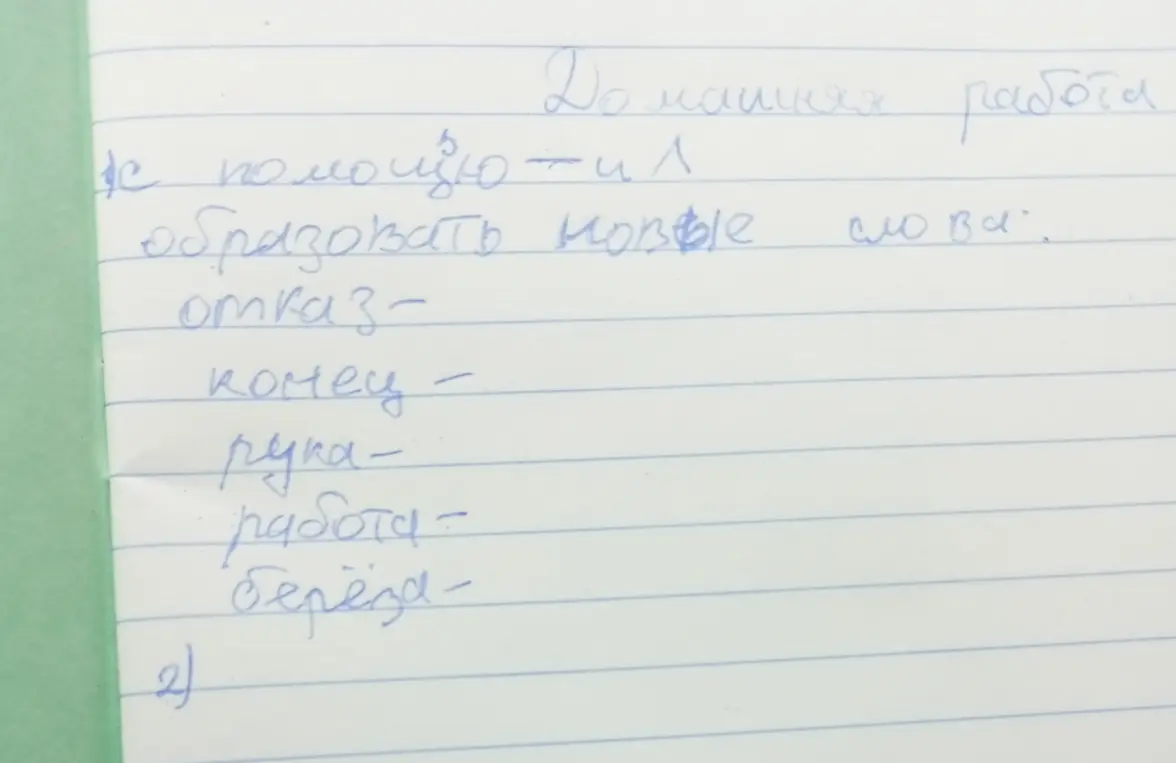 Домашняя работа
1с помощью — и ^
образовать новые слова:
отказ-
конец -
рука-
работа-
берёза-
2)